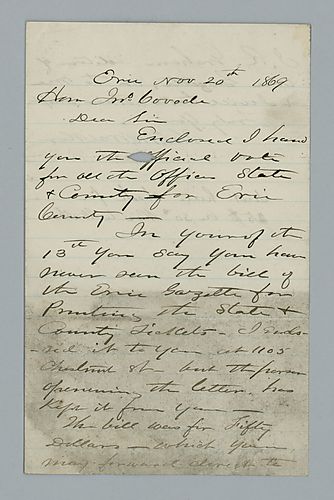 Erie Nov 20th 1869
Hon Jno Covode
Dear Sir
Enclosed I hand
you the official vote
for all the Offices State
& County for Erie
County —
In yours of the
13th you say you have
never seen the bill of
the Erie Gazette for
Printing the State &
County Tickets — I
it to you at 1105
Chestnut St — but the person
opening the letter, has
Kept it from you —
The bill was for Fifty
Dollars — which you
may forward direct to